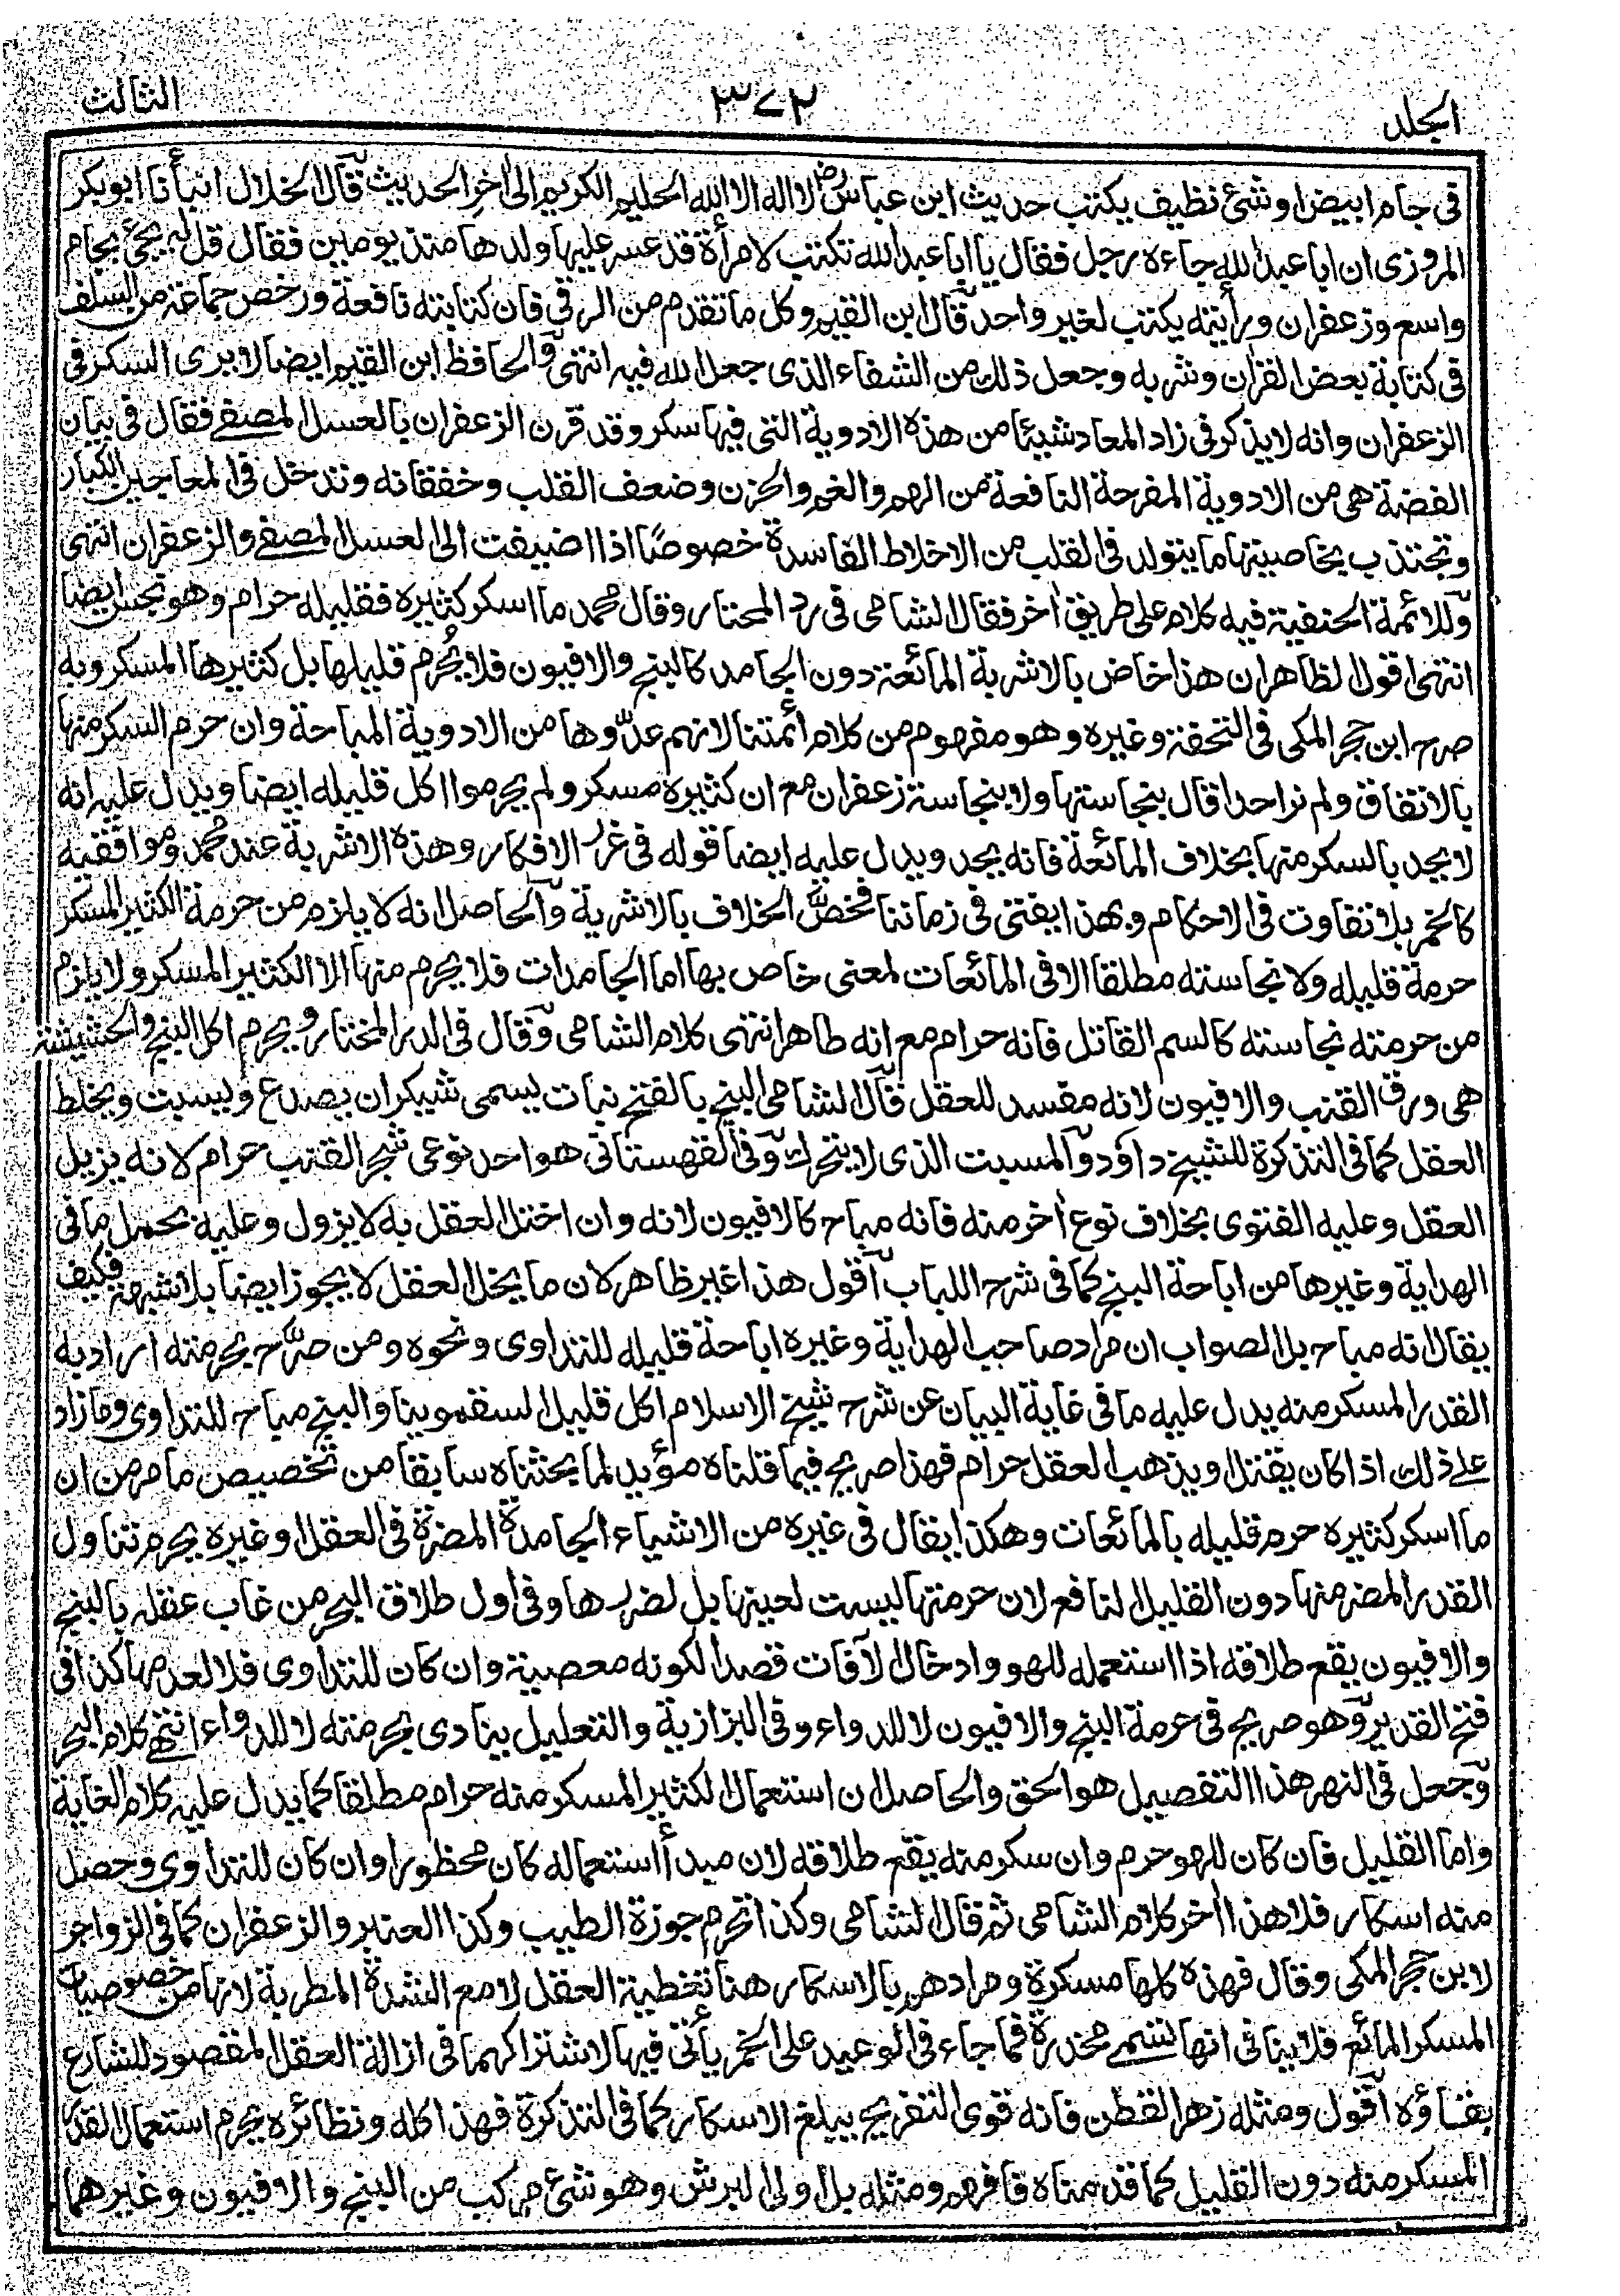 الجلد ٣٧٢ الثالث
فى جام ابيض او شئ نظيف يكتب حديث ابن عباس رض لا اله الا الله الحليم الكريم الى اخر الحديث قال الخلال انبأنا ابو بكر
المروزى ان ابا عبد الله جاءه رجل فقال يا ابا عبد الله تكتب لامرأة قد عسر عليها ولدها منذ يومين فقال قل له يجئ بجام
واسع وزعفران ورأيته يكتب لغير واحد قال ابن القيم وكل ما تقدم من الرقى فان كتابته نافعة ورخص جماعة من السلف
فى كتابة بعض القران وشربه وجعل ذلك من الشفاء الذى جعل الله فيه انتهى والحافظ ابن القيم ايضا لا يرى السكر فى
الزعفران وانه لا يذكر فى زاد المعاد شيئا من هذه الادوية التى فيها سكر وقد قرن الزعفران بالعسل المصفے فقال فى بيان
الفضة هى من الادوية المفرحة النافعة من الهم والغم والحزن وضعف القلب وخفقانه وتدخل فى المعاجين الكبار
وتجتذب بخاصيتها ما يتولد فى القلب من الاخلاط الفاسدة خصوصًا اذا اضيفت الى العسل المصفے والزعفران انتهى
وللائمة الحنفية فيه كلام على طريق اخر فقال الشامى فى رد المحتار وقال محمد ما اسكر كثيره فقليله حرام وهو نجس ايضا
انتهى اقول الظاهر ان هذا خاص بالاشربة المائعة دون الجامد كالبنج والافيون فلا يُحرم قليلها بل كثيرها المسكر وبه
صرح ابن حجر المكى فى التحفة وغيره وهو مفهوم من كلام أئمتنا لانهم عدّوها من الادوية المباحة وان حرم السكر منها
بالاتفاق ولم نر احدا قال بنجاستها ولا بنجاسة زعفران مع ان كثيره مسكر ولم يحرموا اكل قليله ايضا ويدل عليه انه
لا يحد بالسكر منها بخلاف المائعة فانه يحد ويدل عليه ايضا قوله فى غرر الافكار وهذه الاشربة عند محمد وموافقيه
كالخمر بلا تفاوت فى الاحكام وبهذا يفتى فى زماننا فخصّ الخلاف بالاشربة والحاصل انه لا يلزم من حرمة الكثير المسكر
حرمة قليله ولا نجاسته مطلقا الا فى المائعات لمعنى خاص بها اما الجامدات فلا يحرم منها الا الكثير المسكر ولا يلزم
من حرمته نجاسته كالسم القاتل فانه حرام مع انه طاهر انتهى كلام الشامى وقال فى الدر المختار ويحرم اكل البنج والحشيشة
هى ورق القنب والافيون لانه مفسد للعقل قال الشامى البنج بالفتح نبات يسمى شيكران يصدع ويسبت ويخلط
العقل كما فى التذكرة للشيخ داؤد والمسبت الذى لا يتحرك وفى القهستانى هو احد نوعى شجر القنب حرام لانه يزيل
العقل وعليه الفتوى بخلاف نوع أخر منه فانه مباح كالافيون لانه وان اختل العقل به لا يزول وعليه يحمل ما فى
الهداية وغيرها من اباحة البنج كما فى شرح اللباب اقول هذا غير ظاهر لان ما يخل العقل لا يجوز ايضا بلا شبهة فكيف
يقال انه مباح بل الصواب ان مراد صاحب الهداية وغيره اباحة قليله للتداوى ونحوه ومن صرّح بحرمته اراد به
القدر المسكر منه يدل عليه ما فى غاية البيان عن شرح شيخ الاسلام اكل قليل السقمونيا والبنج مباح للتداوى وما زاد
علے ذلك اذا كان يقتل او يذهب العقل حرام فهذا صريح فيما قلناه مؤيد لما بحثناه سابقا من تخصيص ما مر من ان
ما اسكر كثيره حرم قليله بالمائعات وهكذا يقال فى غيره من الاشياء الجامدة المضرة فى العقل او غيره يحرم تناول
القدر المضر منها دون القليل النافع لان حرمتها ليست لعينها بل لضررها وفى اول طلاق البحر من غاب عقله بالبنج
والافيون يقع طلاقه اذا استعمله للهو وادخال الآفات قصدا لكونه معصية وان كان للتداوى فلا لعدمها كذا فى
فتح القدير وهو صريح فى حرمة البنج والافيون لا للدواء وفى البزازية والتعليل ينادى بحرمته لا للدواء انتهے كلام البحر
وجعل فى النهر هذا التفصيل هو الحق والحاصل ان استعمال الكثير المسكر منه حرام مطلقا كما يدل عليه كلام الغاية
واما القليل فان كان للهو حرم وان سكر منه يقع طلاقه لان مبدأ استعماله كان محظورا وان كان للتداوى وحصل
منه اسكار فلا هذا اخر كلام الشامى ثم قال الشامى وكذا تحرم جوزة الطيب وكذا العنبر والزعفران كما فى الزواجر
لابن حجر المكى وقال فهذه كلها مسكرة ومرادهم بالاسكار هنا تغطية العقل لا مع الشدة المطربة لانها من خصوصيات
المسكر المائع فلا ينافى انها تسمے مخدرة فما جاء فى الوعيد على الخمر يأتى فيها لاشتراكهما فى ازالة العقل المقصود للشارع
بقاؤه اقول ومثله زهر القطن فانه قوى التفريح يبلغ الاسكار كما فى التذكرة فهذا كله ونظائره يحرم استعمال القدر
المسكر منه دون القليل كما قدمناه فافهم ومثله بل اولى البرش وهو شئ مركب من البنج والافيون وغيرهما